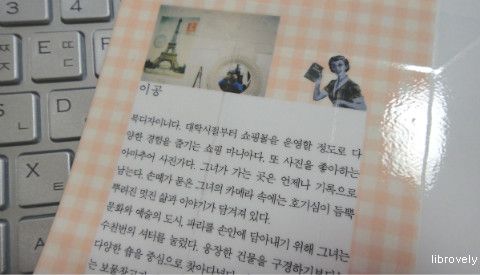 3
4
ㅉ
ㄸ
S
E
이공
북디자이너다. 대학시절부터 쇼핑몰을 운영할 정도로 다
양한 경험을 즐기는 쇼핑 마니아다. 또 사진을 좋아하는
아마추어 사진가다. 그녀가 가는 곳은 언제나 기록으로
남는다. 손때가 묻은 그녀의 카메라 속에는 호기심이 듬뿍
뿌려진 멋진 삶과 이야기가 담겨져 있다.
문화와 예술의 도시, 파리를 손안에 담아내기 위해 그녀는
수천번의 셔터를 눌렀다. 웅장한 건물을 구경하기보다는
다양한 숍을 중심으로 찾아다니며
는 보물창고
librovely